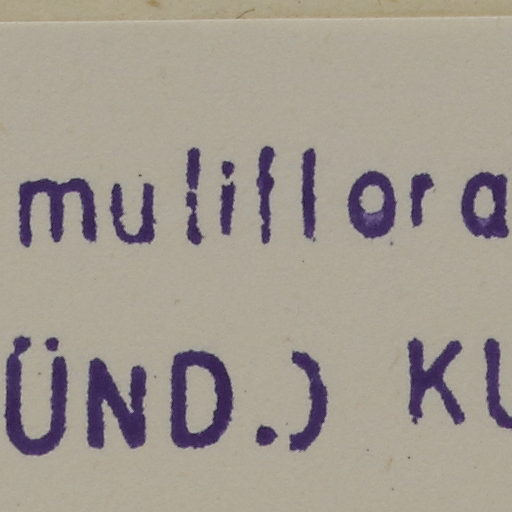 muliflora
ÜND.) KU